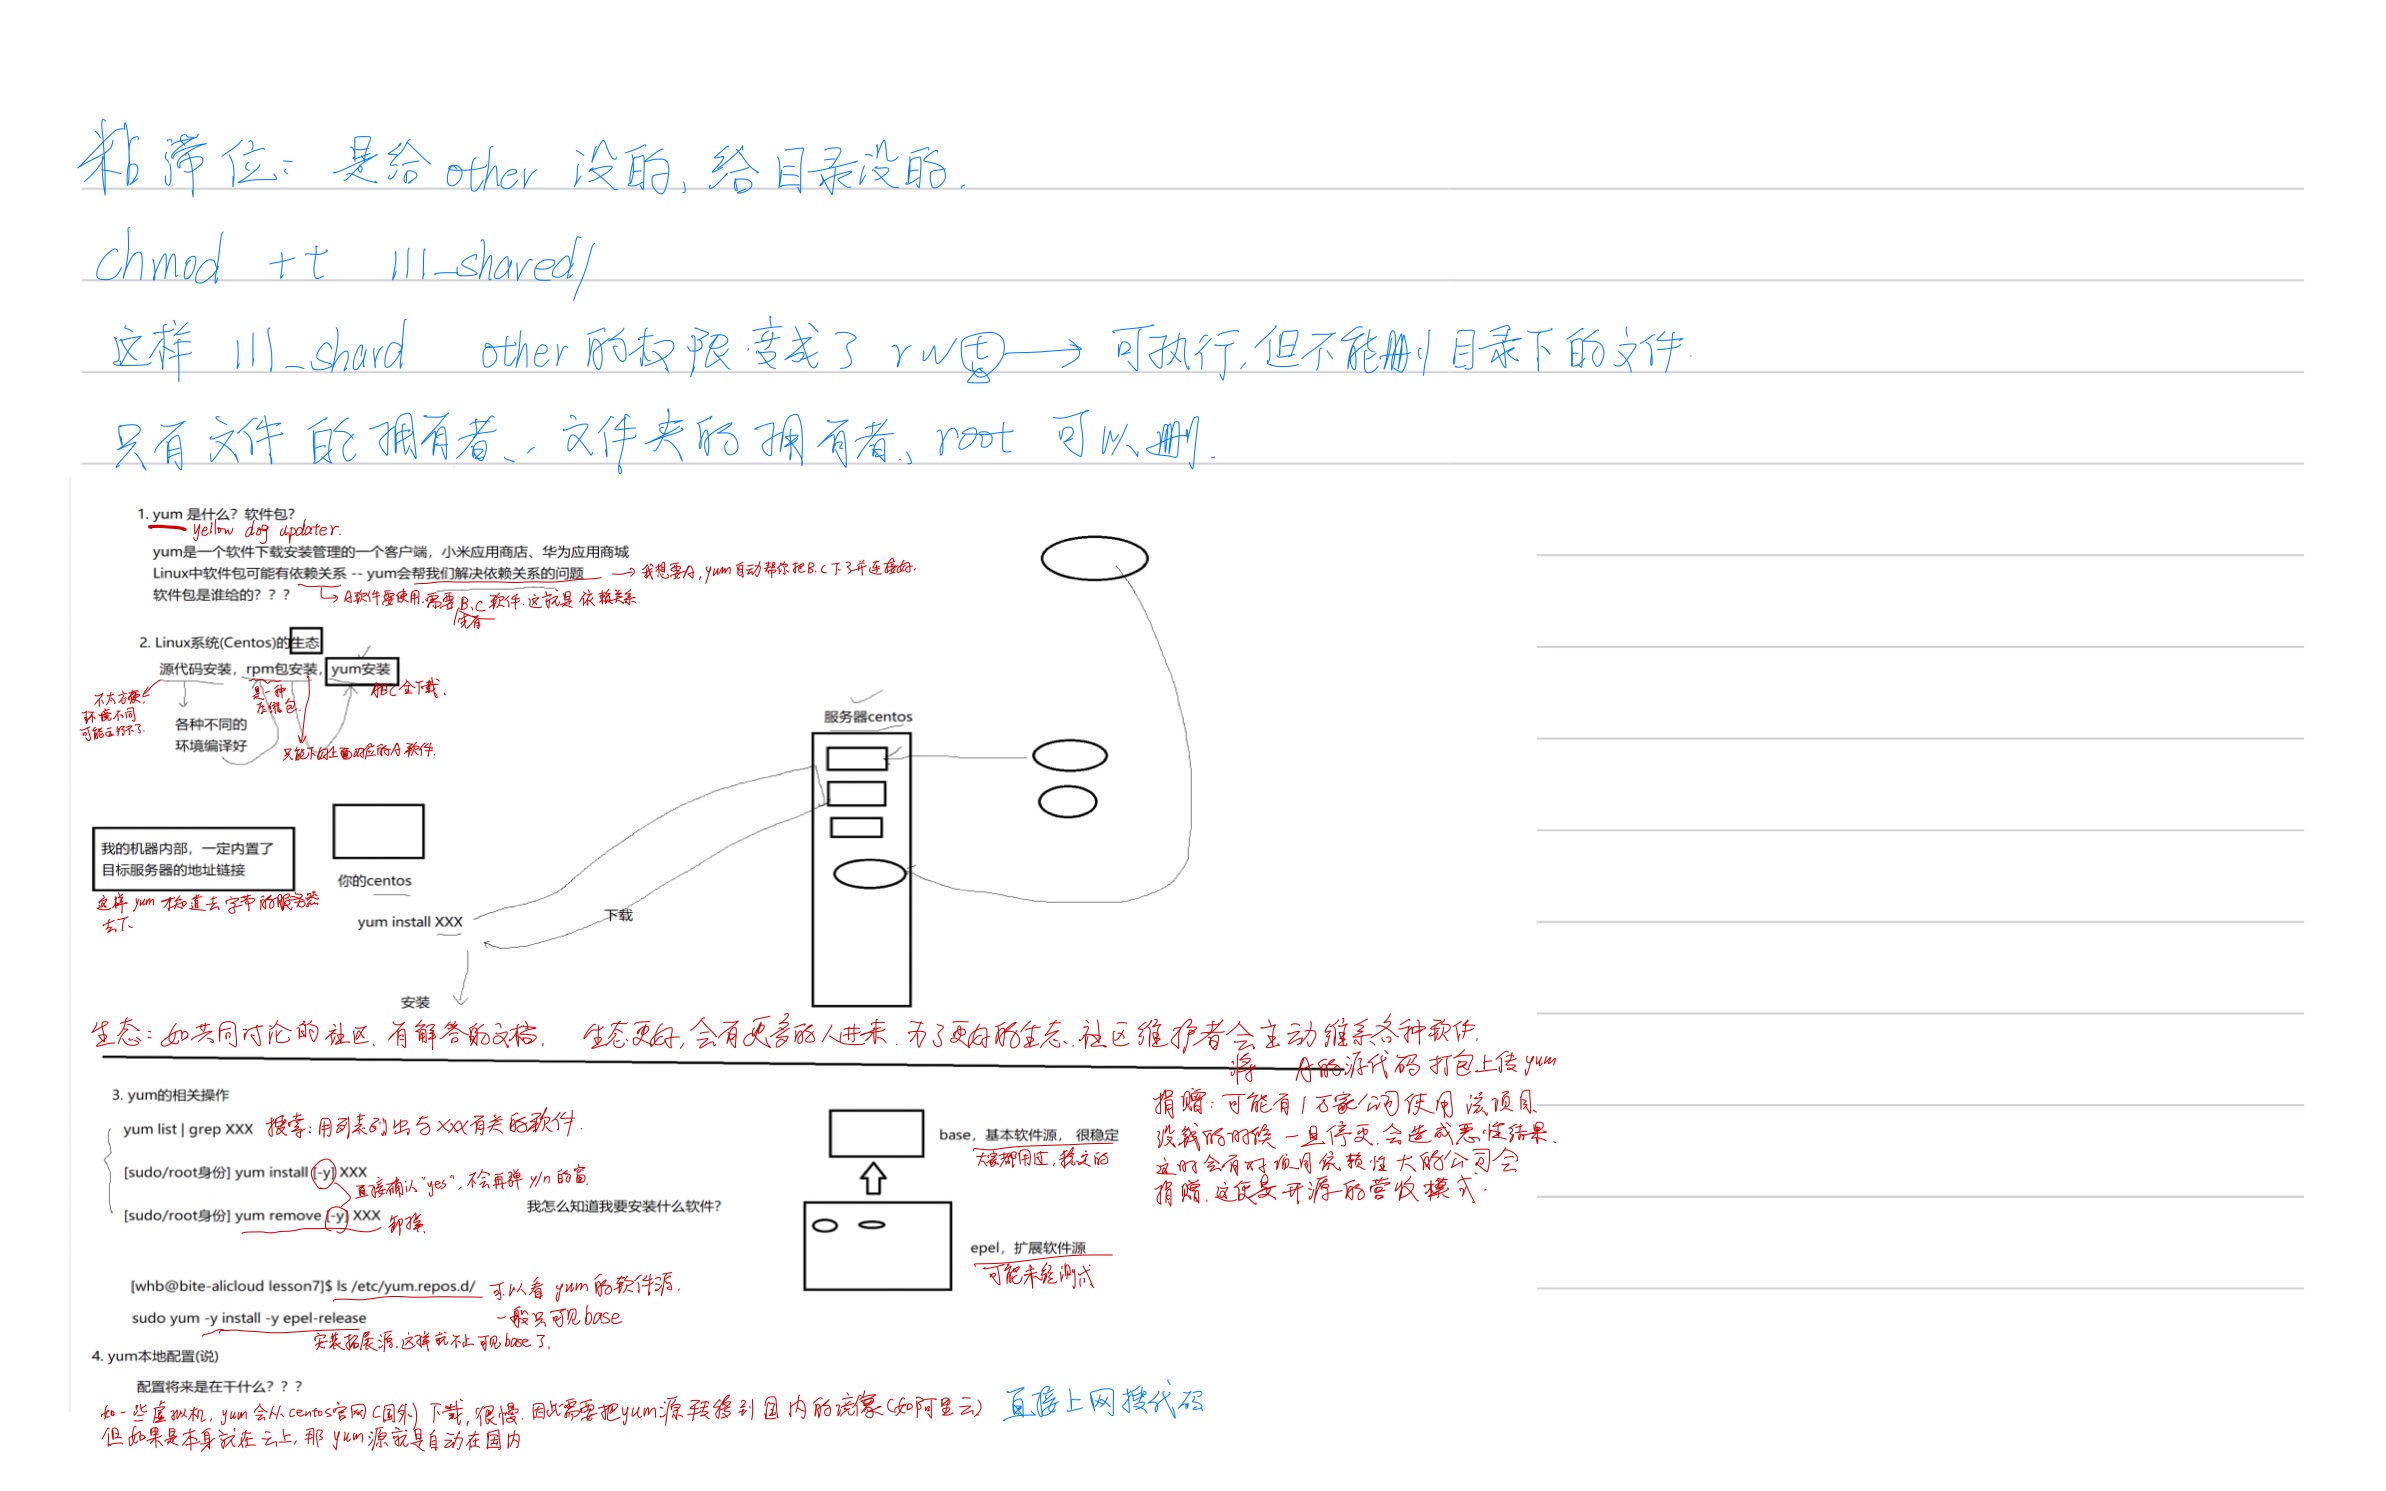 粘滞位：是给other设的，给目录设的.
chmod +t lll_shared/
这样 lll_shard other的权限变成了 rwt → 可执行，但不能删目录下的文件.
只有文件的拥有者、文件夹的拥有者、root 可以删.
1. yum 是什么？软件包？
yellow dog updater.
yum是一个软件下载安装管理的一个客户端，小米应用商店、华为应用商城
Linux中软件包可能有依赖关系 -- yum会帮我们解决依赖关系的问题 → 我想要A，yum自动帮你把B.C下了并连接好.
软件包是谁给的？？？ A软件要使用.需要B、C软件.这就是依赖关系.
先有
2. Linux系统(Centos)的生态
源代码安装，rpm包安装，yum安装
不太方便，
环境不同
可能运行不了.
是一种
压缩包.
ABC全下载.
各种不同的
环境编译好
只能下载上面对应的A软件.
服务器centos
我的机器内部，一定内置了
目标服务器的地址链接
这样yum才知道去字节的服务器
去下.
你的centos
yum install XXX
下载
安装
生态：如共同讨论的社区、有解答的文档. 生态更好，会有更多的人进来.为了更好的生态.社区维护者会主动维系各种软件.
将 A的源代码打包上传yum
捐赠：可能有1万家公司使用该项目
没钱的时候一旦停更.会造成恶性结果.
这时会有对项目依赖性大的公司会
捐赠.这便是开源的营收模式.
3. yum的相关操作
yum list | grep XXX 搜索：用列表列出与XXX有关的软件.
[sudo/root身份] yum install [-y] XXX
直接确认"yes"，不会再弹y/n的窗
[sudo/root身份] yum remove [-y] XXX 卸掉.
我怎么知道我要安装什么软件？
base，基本软件源， 很稳定
大家都用过，稳定的
epel，扩展软件源
可能未经测试
[whb@bite-alicloud lesson7]$ ls /etc/yum.repos.d/ 可以看yum的软件源.
一般只可见base
sudo yum -y install -y epel-release
安装拓展源.这样就不止可见base了.
4. yum本地配置(说)
配置将来是在干什么？？？
如一些虚拟机，yum会从centos官网(国外)下载，很慢.因此需要把yum源转移到国内的镜像(如阿里云) 直接上网搜代码
但如果是本身就在云上，那yum源就是自动在国内